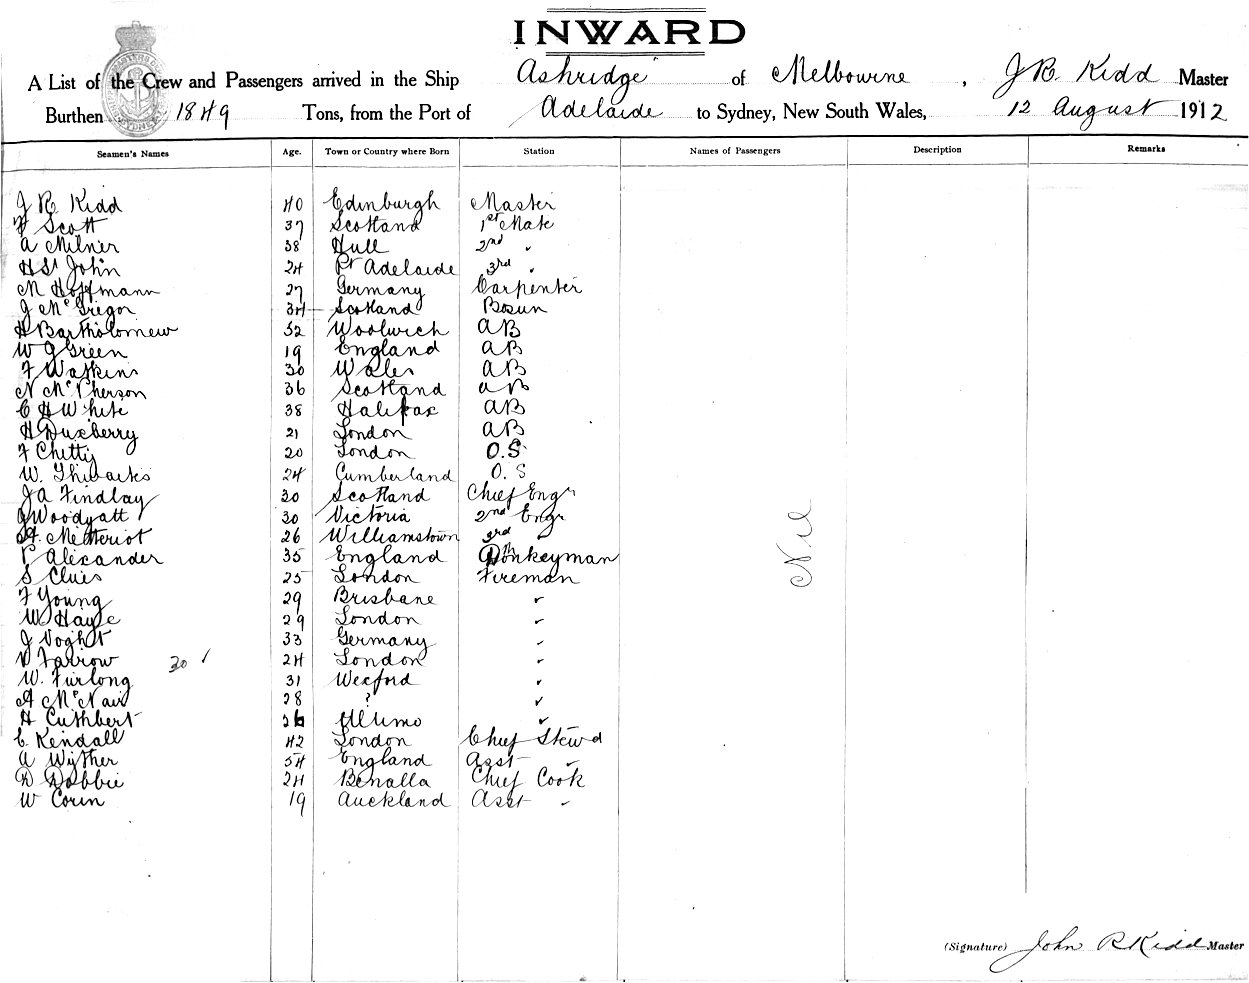 INWARD
A List of the Crew and Passengers arrived in the Ship Ashridge of Melbourne, J R Kidd Master
Burthen 1849 Tons, from the Port of Adelaide to Sydney, New South Wales, 12 August 1912
Seamen's Names Age. Town or Country where Born Station Names of Passengers Description Remarks
J R Kidd 40 Edinburgh Master
F Scott 37 Scotland 1st Mate
A Milner 38 Hull 2nd "
H St John 24 Pt Adelaide 3rd "
M Hoffmann 27 Germany Carpenter
J McGregor 34 Scotland Bosun
H Bartholomew 52 Woolwich AB
W G Green 19 England AB
F Watkins 30 Wales AB
N McPherson 36 Scotland AB
C H White 38 Halifax AB
H Duxberry 21 London AB
F Chetty 20 London O.S
W. 24 Cumberland O.S
J A Findlay 30 Scotland Chief Engr
J Woodyatt 30 Victoria 2nd Engr
26 Williamstown 3rd "
P Alexander 35 England Donkeyman
S Clues 25 London Fireman
F Young 29 Brisbane "
W Haye 29 London "
J Voght 33 Germany "
Farrow 30 24 London "
W. Furlong 31 Wexford "
A McNair 28 ? "
H Cuthbert 26 "
C. Kendall 42 London Chief Stewd
A Wyther 54 England Asst "
D Dobbie 24 Benalla Chief Cook
W Corin 19 Auckland Asst "
Nil
(Signature) John R Kidd Master